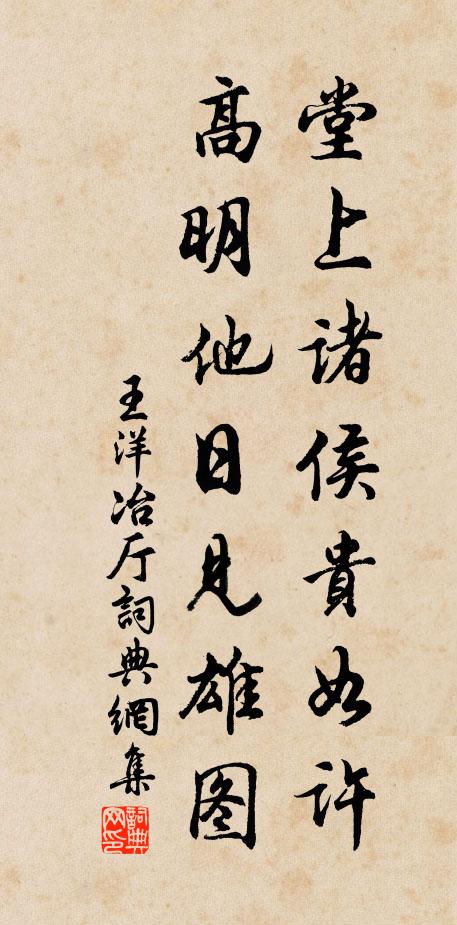 堂上诸侯貴如许
高明他日见雄图
王洋冶厅詞典網集
詞典网印